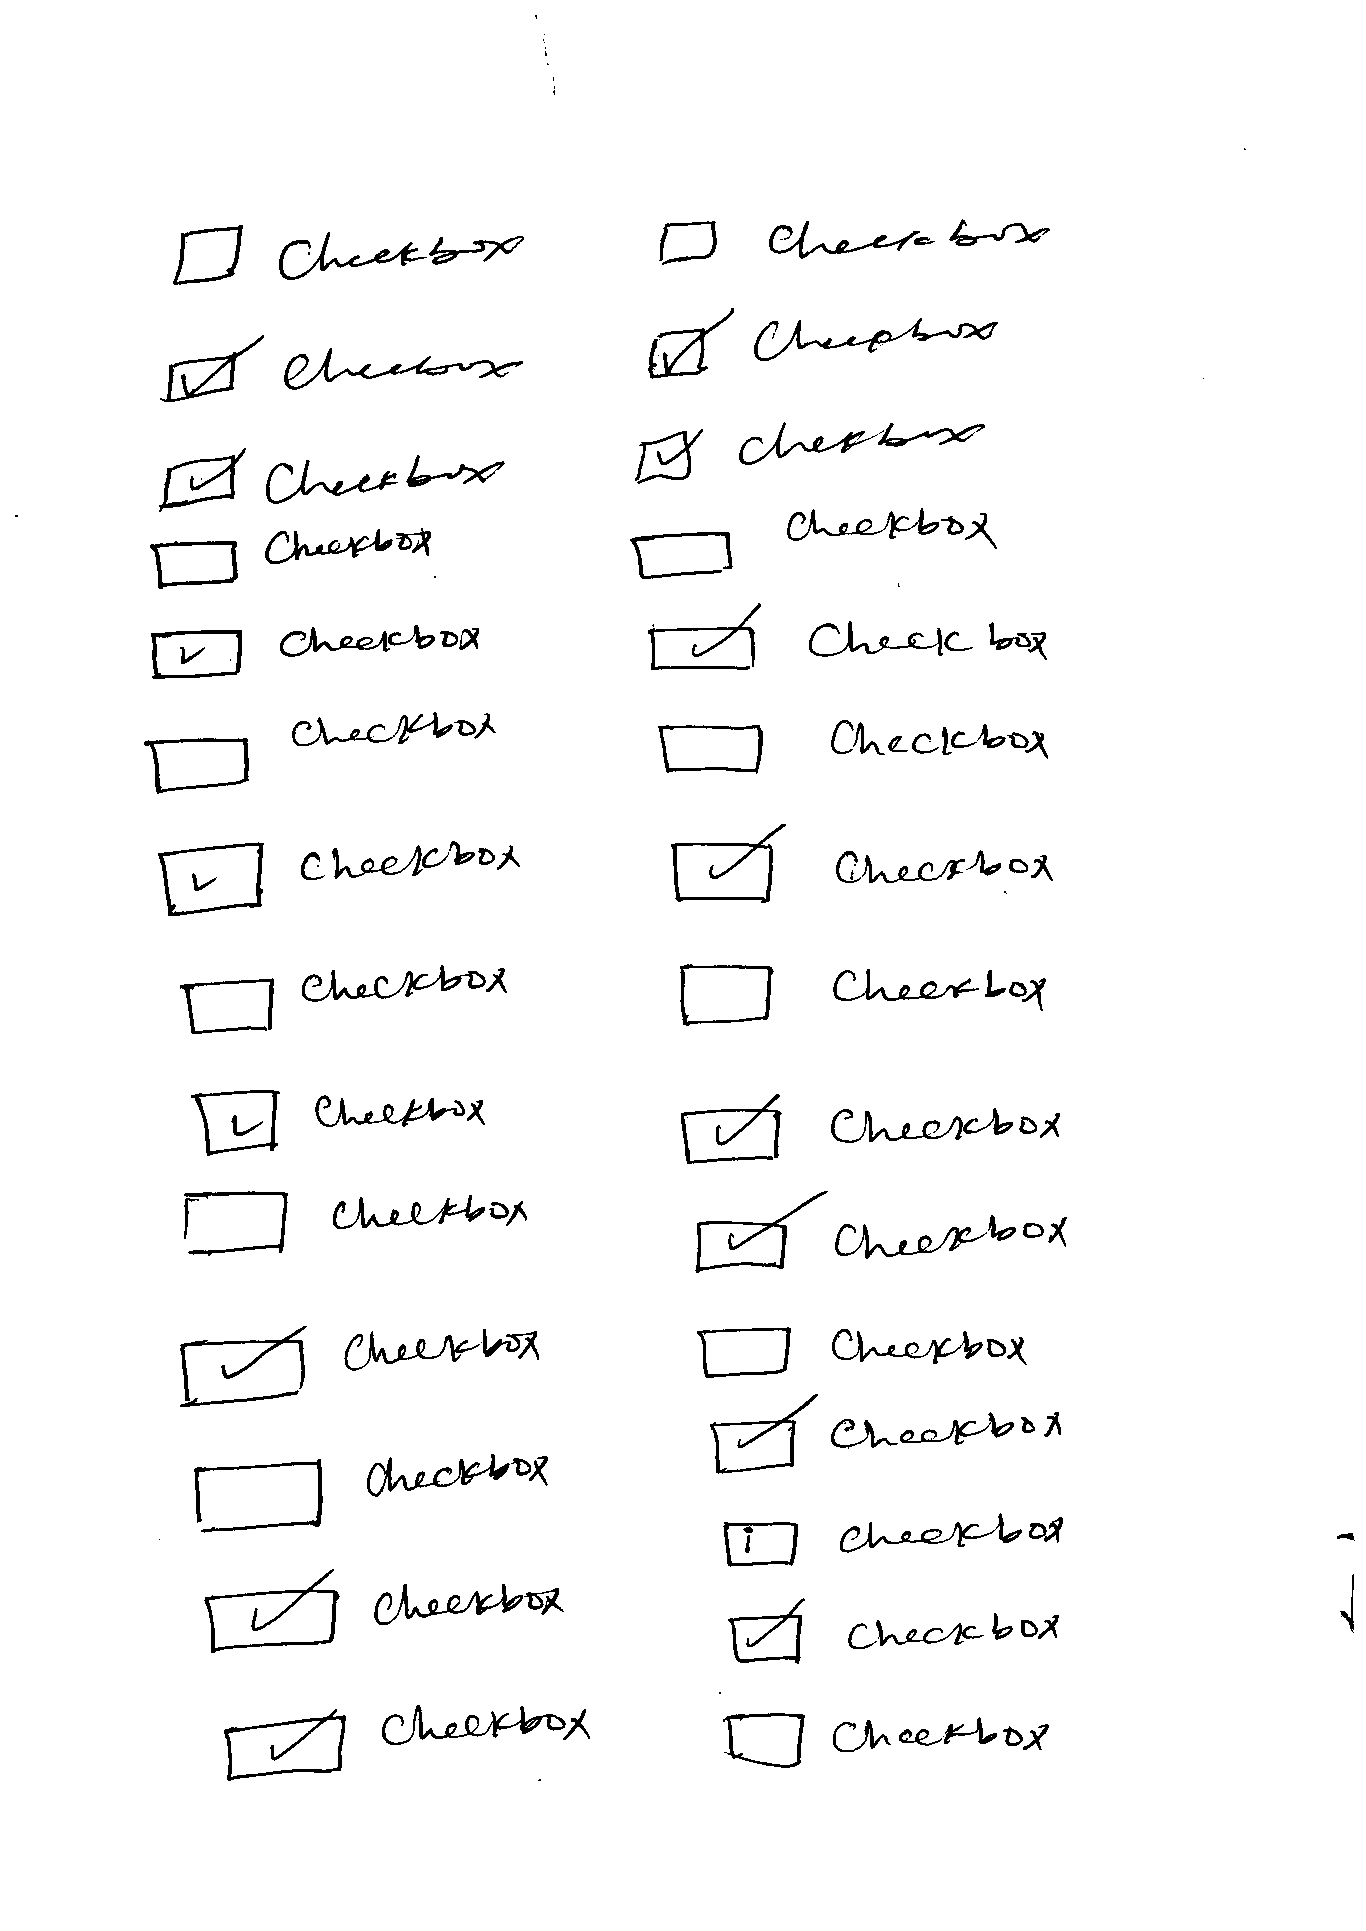 ☐ Checkbox ☐ Check box
☑ Checkbox ☑ Checkbox
☑ Checkbox ☑ Checkbox
☐ Checkbox ☐ Checkbox
☑ Checkbox ☑ Check box
☐ Checkbox ☐ Checkbox
☑ Checkbox ☑ Checkbox
☐ Checkbox ☐ Checkbox
☑ Checkbox ☑ Checkbox
☐ Checkbox ☑ Checkbox
☑ Checkbox ☐ Checkbox
☐ Checkbox ☑ Checkbox
☑ Checkbox i Checkbox
☑ Checkbox ☑ Checkbox
☐ Checkbox